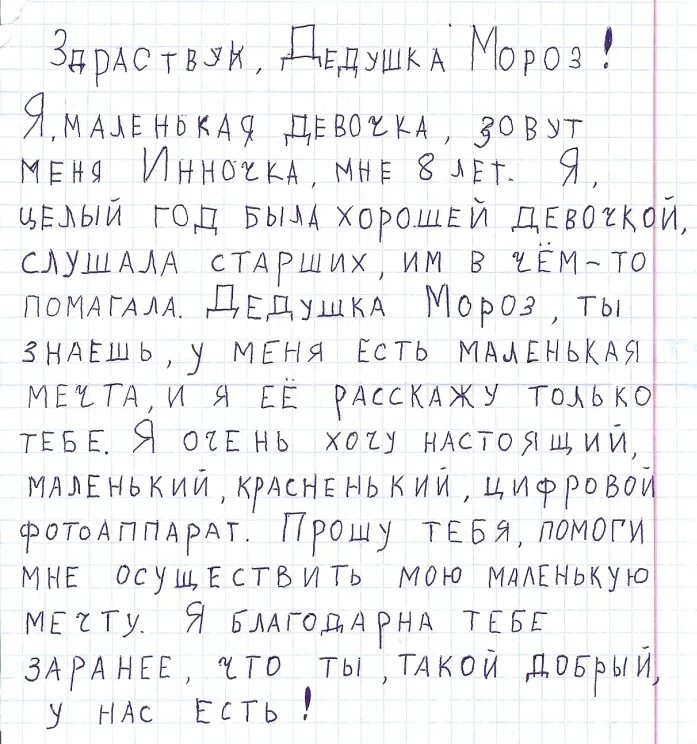 Здраствуй, Дедушка Мороз!
Я, маленькая девочка, зовут
меня Инночка, мне 8 лет. Я,
целый год была хорошей девочкой,
слушала старших, им в чём-то
помагала. Дедушка Мороз, ты
знаешь, у меня есть маленькая
мечта, и я её расскажу только
тебе. Я очень хочу настоящий,
маленький, красненький, цифровой
фотоаппарат. Прошу тебя, помоги
мне осуществить мою маленькую
мечту. Я благодарна тебе
заранее, что ты, такой добрый,
у нас есть!